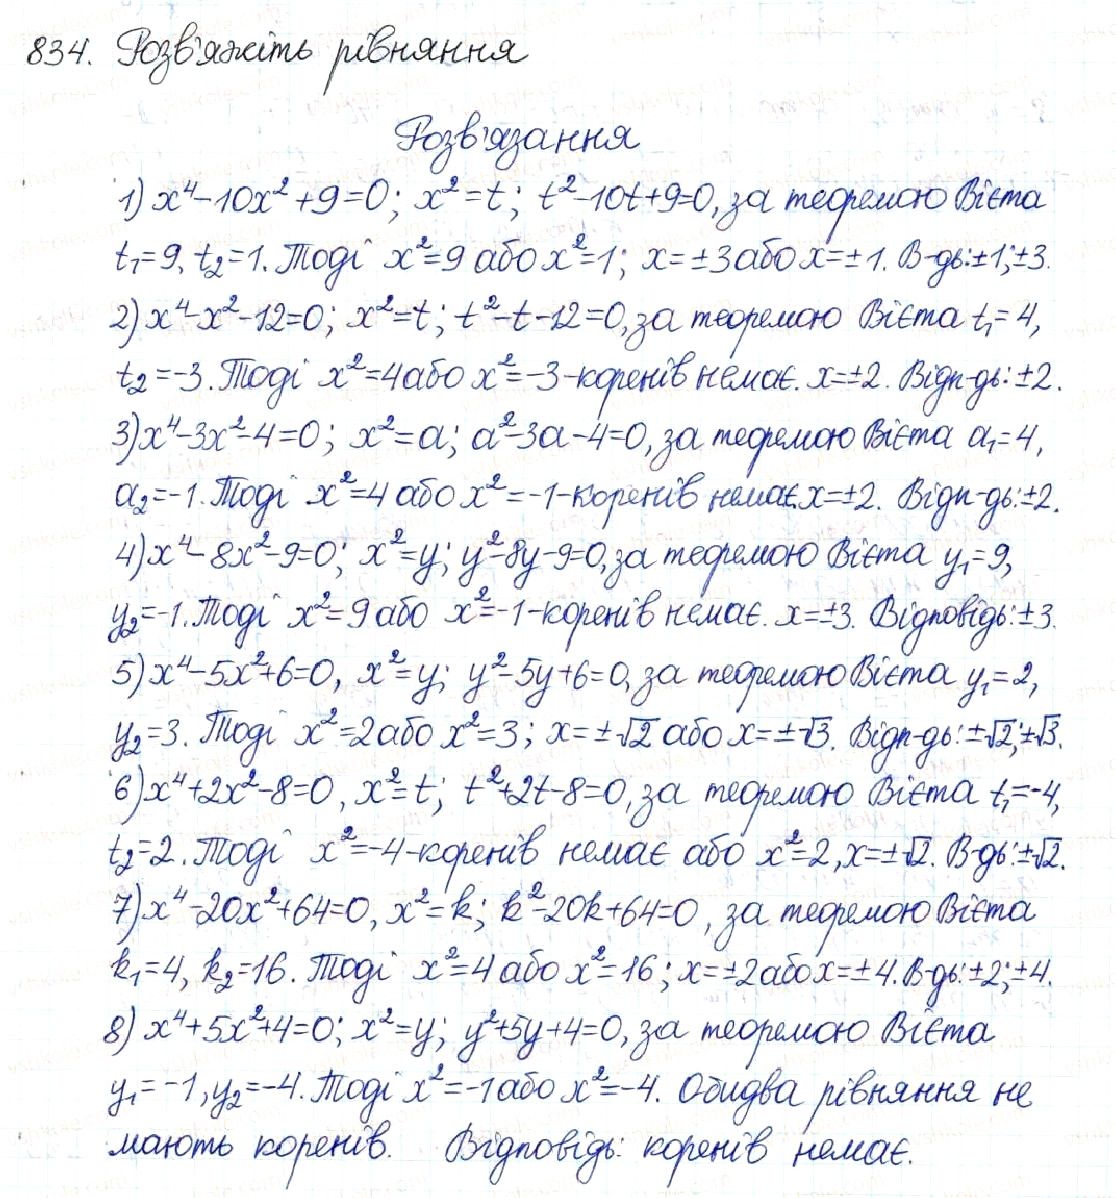 834. Розв'яжіть рівняння
Розв'язання
1) x⁴-10x²+9=0; x²=t; t²-10t+9=0, за теоремою Вієта
t₁=9, t₂=1. Тоді x²=9 або x²=1; x=±3 або x=±1. В-дь:±1;±3.
2) x⁴-x²-12=0; x²=t; t²-t-12=0, за теоремою Вієта t₁=4,
t₂=-3. Тоді x²=4 або x²=-3-коренів немає. x=±2. Відп-дь:±2.
3) x⁴-3x²-4=0; x²=a; a²-3a-4=0, за теоремою Вієта a₁=4,
a₂=-1. Тоді x²=4 або x²=-1-коренів немає. x=±2. Відп-дь:±2.
4) x⁴-8x²-9=0; x²=y; y²-8y-9=0, за теоремою Вієта y₁=9,
y₂=-1. Тоді x²=9 або x²=-1-коренів немає. x=±3. Відповідь:±3.
5) x⁴-5x²+6=0, x²=y; y²-5y+6=0, за теоремою Вієта y₁=2,
y₂=3. Тоді x²=2 або x²=3; x=±√2 або x=±√3. Відп-дь:±√2;±√3.
6) x⁴+2x²-8=0, x²=t; t²+2t-8=0, за теоремою Вієта t₁=-4,
t₂=2. Тоді x²=-4-коренів немає або x²=2, x=±√2. В-дь:±√2.
7) x⁴-20x²+64=0, x²=k; k²-20k+64=0, за теоремою Вієта
k₁=4, k₂=16. Тоді x²=4 або x²=16; x=±2 або x=±4. В-дь:±2;±4.
8) x⁴+5x²+4=0; x²=y; y²+5y+4=0, за теоремою Вієта
y₁=-1, y₂=-4. Тоді x²=-1 або x²=-4. Обидва рівняння не
мають коренів. Відповідь: коренів немає.